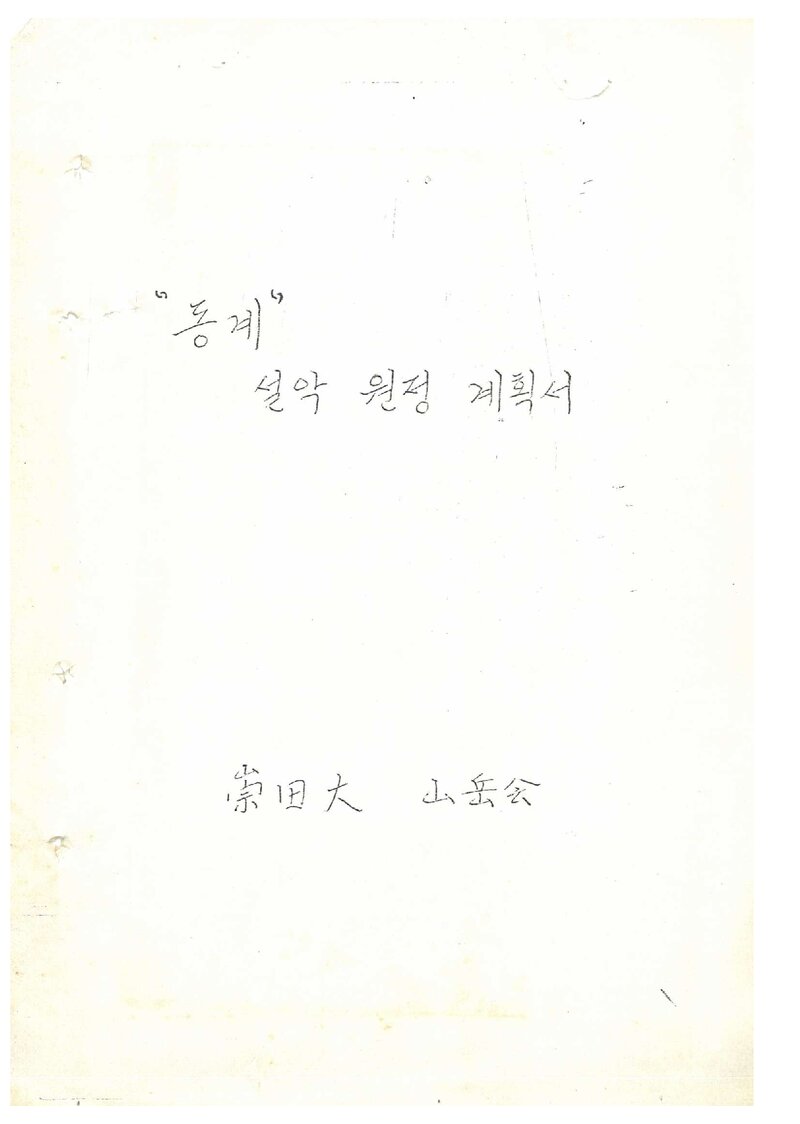 "동계"
설악 원정 계획서
崇田大 山岳会